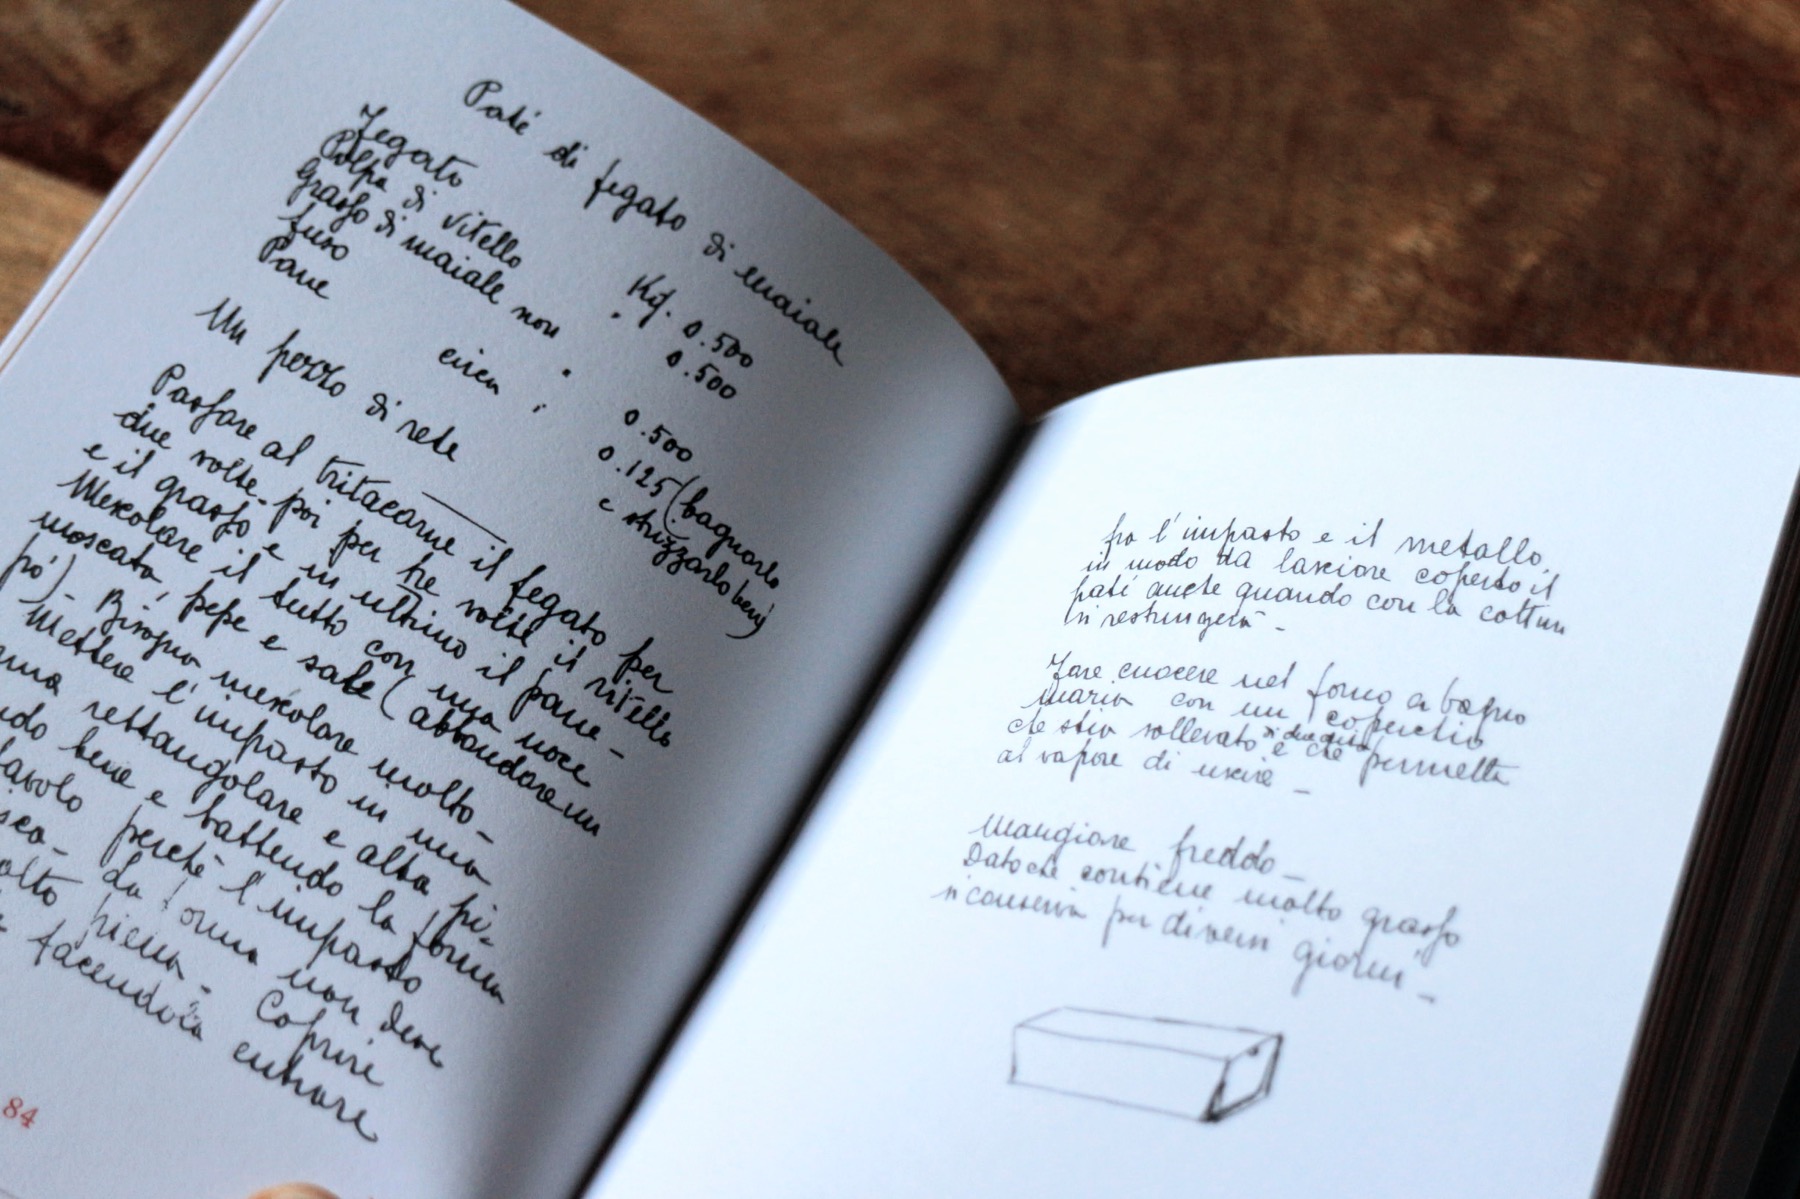 Paté di fegato di maiale
Fegato Kg. 0.500
Polpa di vitello " 0.500
Grasso di maiale non
fuso " 0.500
Pane circa " 0.125 (bagnarlo
e strizzarlo bene)
Un pezzo di rete
Passare al tritacarne il fegato per
due volte - poi per tre volte il vitello
e il grasso e in ultimo il pane -
Mescolare il tutto con una noce
moscata, pepe e sale (abbondare un
pò) - Bisogna mescolare molto -
Mettere l'impasto in una
rettangolare e alta pi-
bene e battendo la forma
perchè l'impasto
La forma non deve
piena - Coprire
facendola entrare
84
fra l'impasto e il metallo,
in modo da lasciare coperto il
paté anche quando con la cottura
si restringerà -
Fare cuocere nel forno a bagno
maria con un coperchio
che stia sollevato di due dita e che permetta
al vapore di uscire -
Mangiare freddo -
Dato che contiene molto grasso
si conserva per diversi giorni -